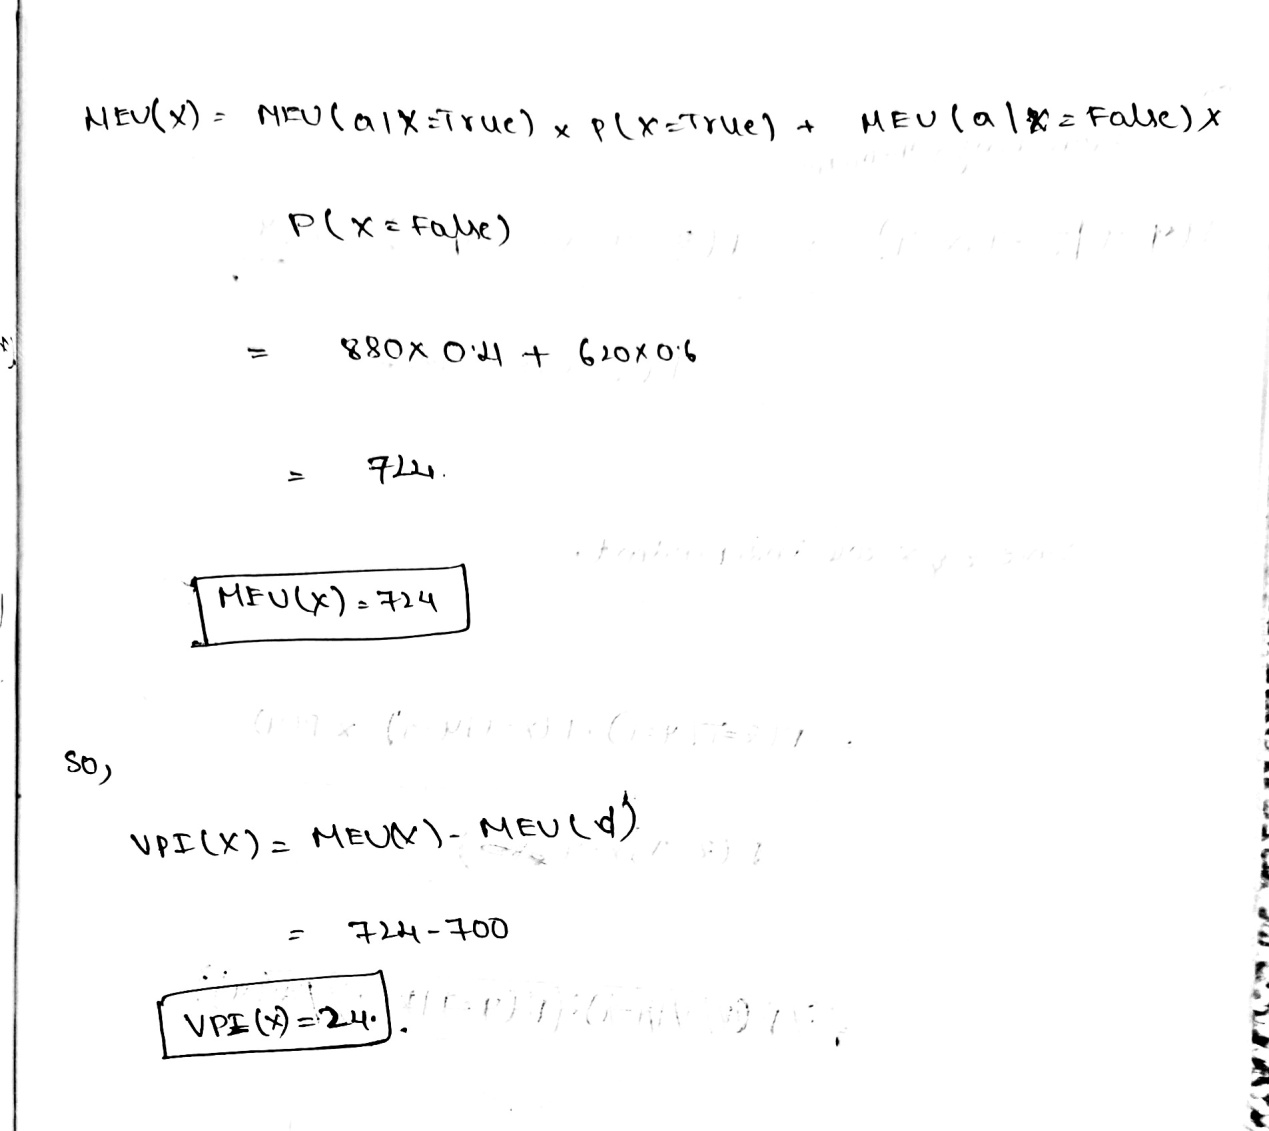 MEU(X) = MEU(a|X=True) x P(X=True) + MEU(a|X=False) x
P(X=False)
= 880x0.4 + 620x0.6
= 724.
MEU(X) = 724
So,
VPI(X) = MEU(X) - MEU(φ)
= 724-700
VPI(X) = 24.